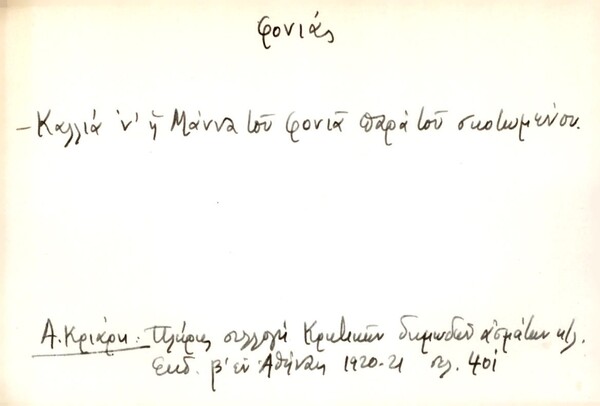 φονιάς
– Καλλιά 'ν' ἡ Μάννα τοῦ φονιᾶ παρά τοῦ σκοτωμένου.
Α. Κριάρη: Πλήρης συλλογή Κρητικῶν δημωδῶν ᾀσμάτων κτλ.
Ἐκδ. β' ἐν Ἀθήναις 1920-21 σελ. 401